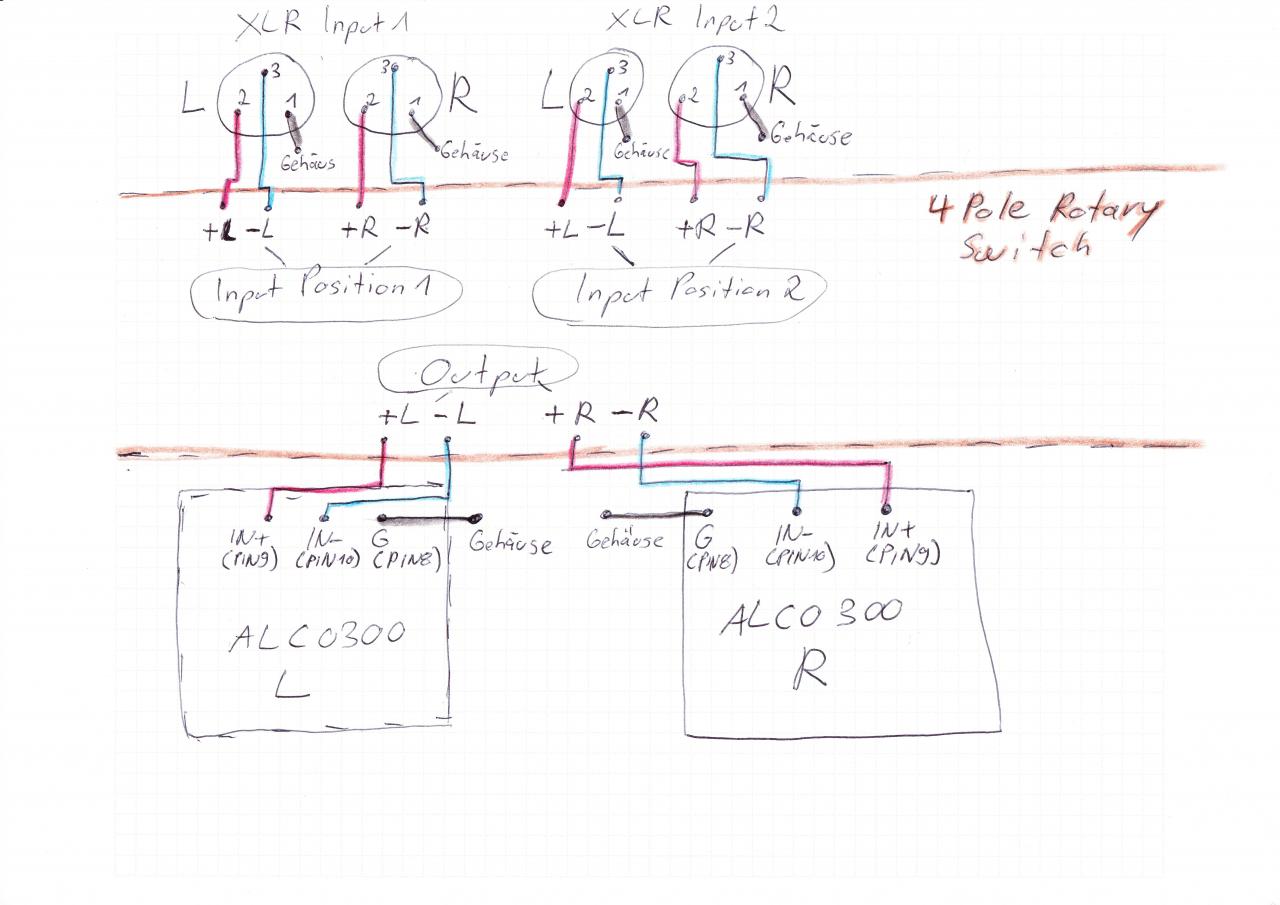 XLR Input 1
XLR Input 2
L
3
2
1
Gehäus
3
2
1
R
Gehäuse
L
3
2
1
Gehäuse
3
2
1
R
Gehäuse
4 Pole Rotary
Switch
+L -L
+R -R
+L -L
+R -R
Input Position 1
Input Position 2
Output
+L -L
+R -R
IN+
(PIN9)
IN-
(PIN10)
G
(PIN8)
Gehäuse
Gehäuse
G
(PIN8)
IN-
(PIN10)
IN+
(PIN9)
ALCO300
L
ALCO300
R